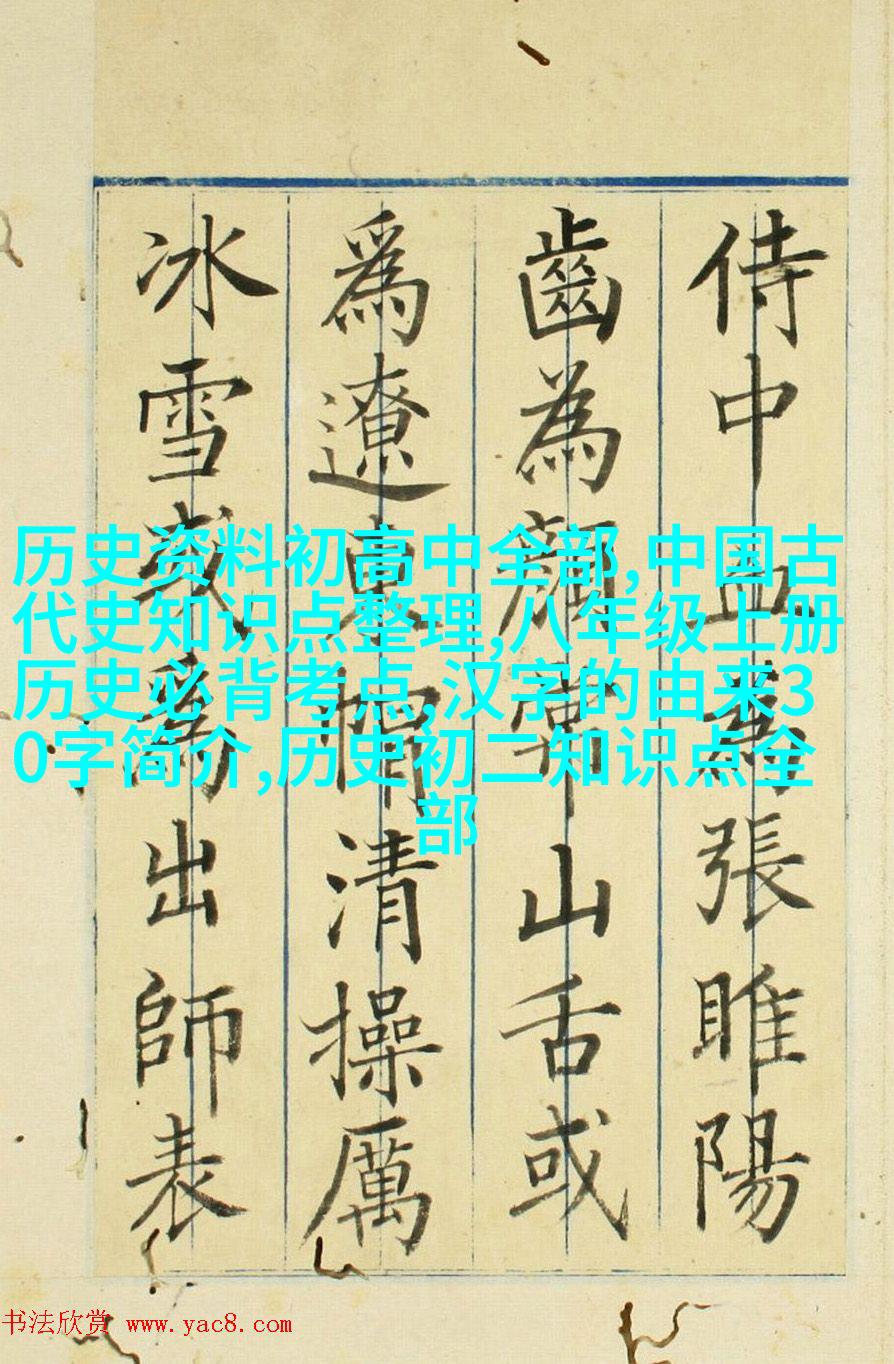 侍中血為張睢陽
齒為顏常山舌或
爲遼東帽清操厲
冰雪或爲出師表
历史资料初高中全部,中国古
代史知识点整理,八年级上册
历史必背考点,汉字的由来3
0字简介,历史初二知识点全
部
书法欣赏 www.yac8.com